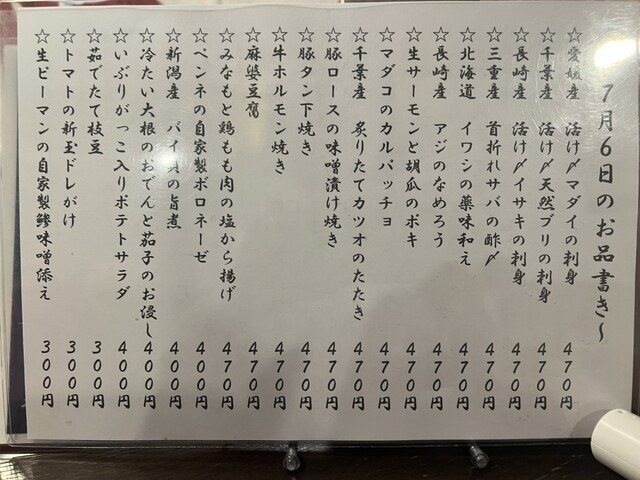 7月6日のお品書き～
☆愛媛産 活け〆マダイの刺身 470円
☆千葉産 活け〆天然ブリの刺身 470円
☆長崎産 活け〆イサキの刺身 470円
☆三重産 首折れサバの酢〆 470円
☆北海道 イワシの薬味和え 470円
☆長崎産 アジのなめろう 470円
☆生サーモンと胡瓜のポキ 470円
☆マダコのカルパッチョ 470円
☆千葉産 炙りたてカツオのたたき 470円
☆豚ロースの味噌漬け焼き 470円
☆豚タン下焼き 470円
☆牛ホルモン焼き 470円
☆麻婆豆腐 470円
☆みなもと鶏もも肉の塩から揚げ 470円
☆ペンネの自家製ボロネーゼ 400円
☆新潟産 バイ貝の旨煮 400円
☆冷たい大根のおでんと茄子のお浸し 400円
☆いぶりがっこ入りポテトサラダ 400円
☆茹でたて枝豆 300円
☆トマトの新玉ドレがけ 300円
☆生ピーマンの自家製鯵味噌添え 300円